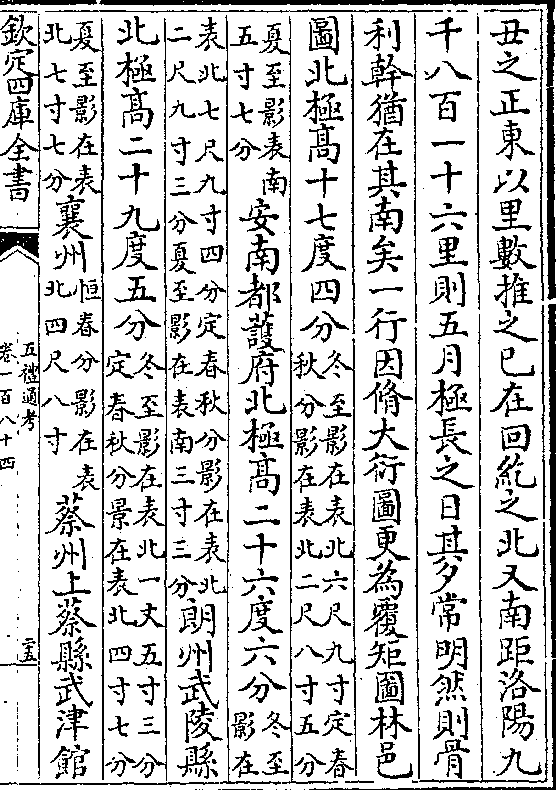 丑之正東以里數推之已在回紇之北又南距洛陽九
千八百一十六里則五月極長之日其夕常明然則骨
利幹猶在其南矣一行因脩大衍圖更為覆矩圖林邑
圖北極髙十七度四分冬至影在表北六尺九寸定春
秋分影在表北二尺八寸五分
夏至影表南
五寸七分
安南都䕶府北極髙二十六度六分冬至
影在
表北七尺九寸四分定春秋分影在表北
二尺九寸三分夏至影在表南三寸三分
朗州武陵縣
北極髙二十九度五分冬至影在表北一丈五寸三分
定春秋分景在表北四寸七分
夏至影在表
北七寸七分
襄州恒春分影在表
北四尺八寸
蔡州上蔡縣武津館
欽定四庫全書
五禮通考
卷一百八十四
二五